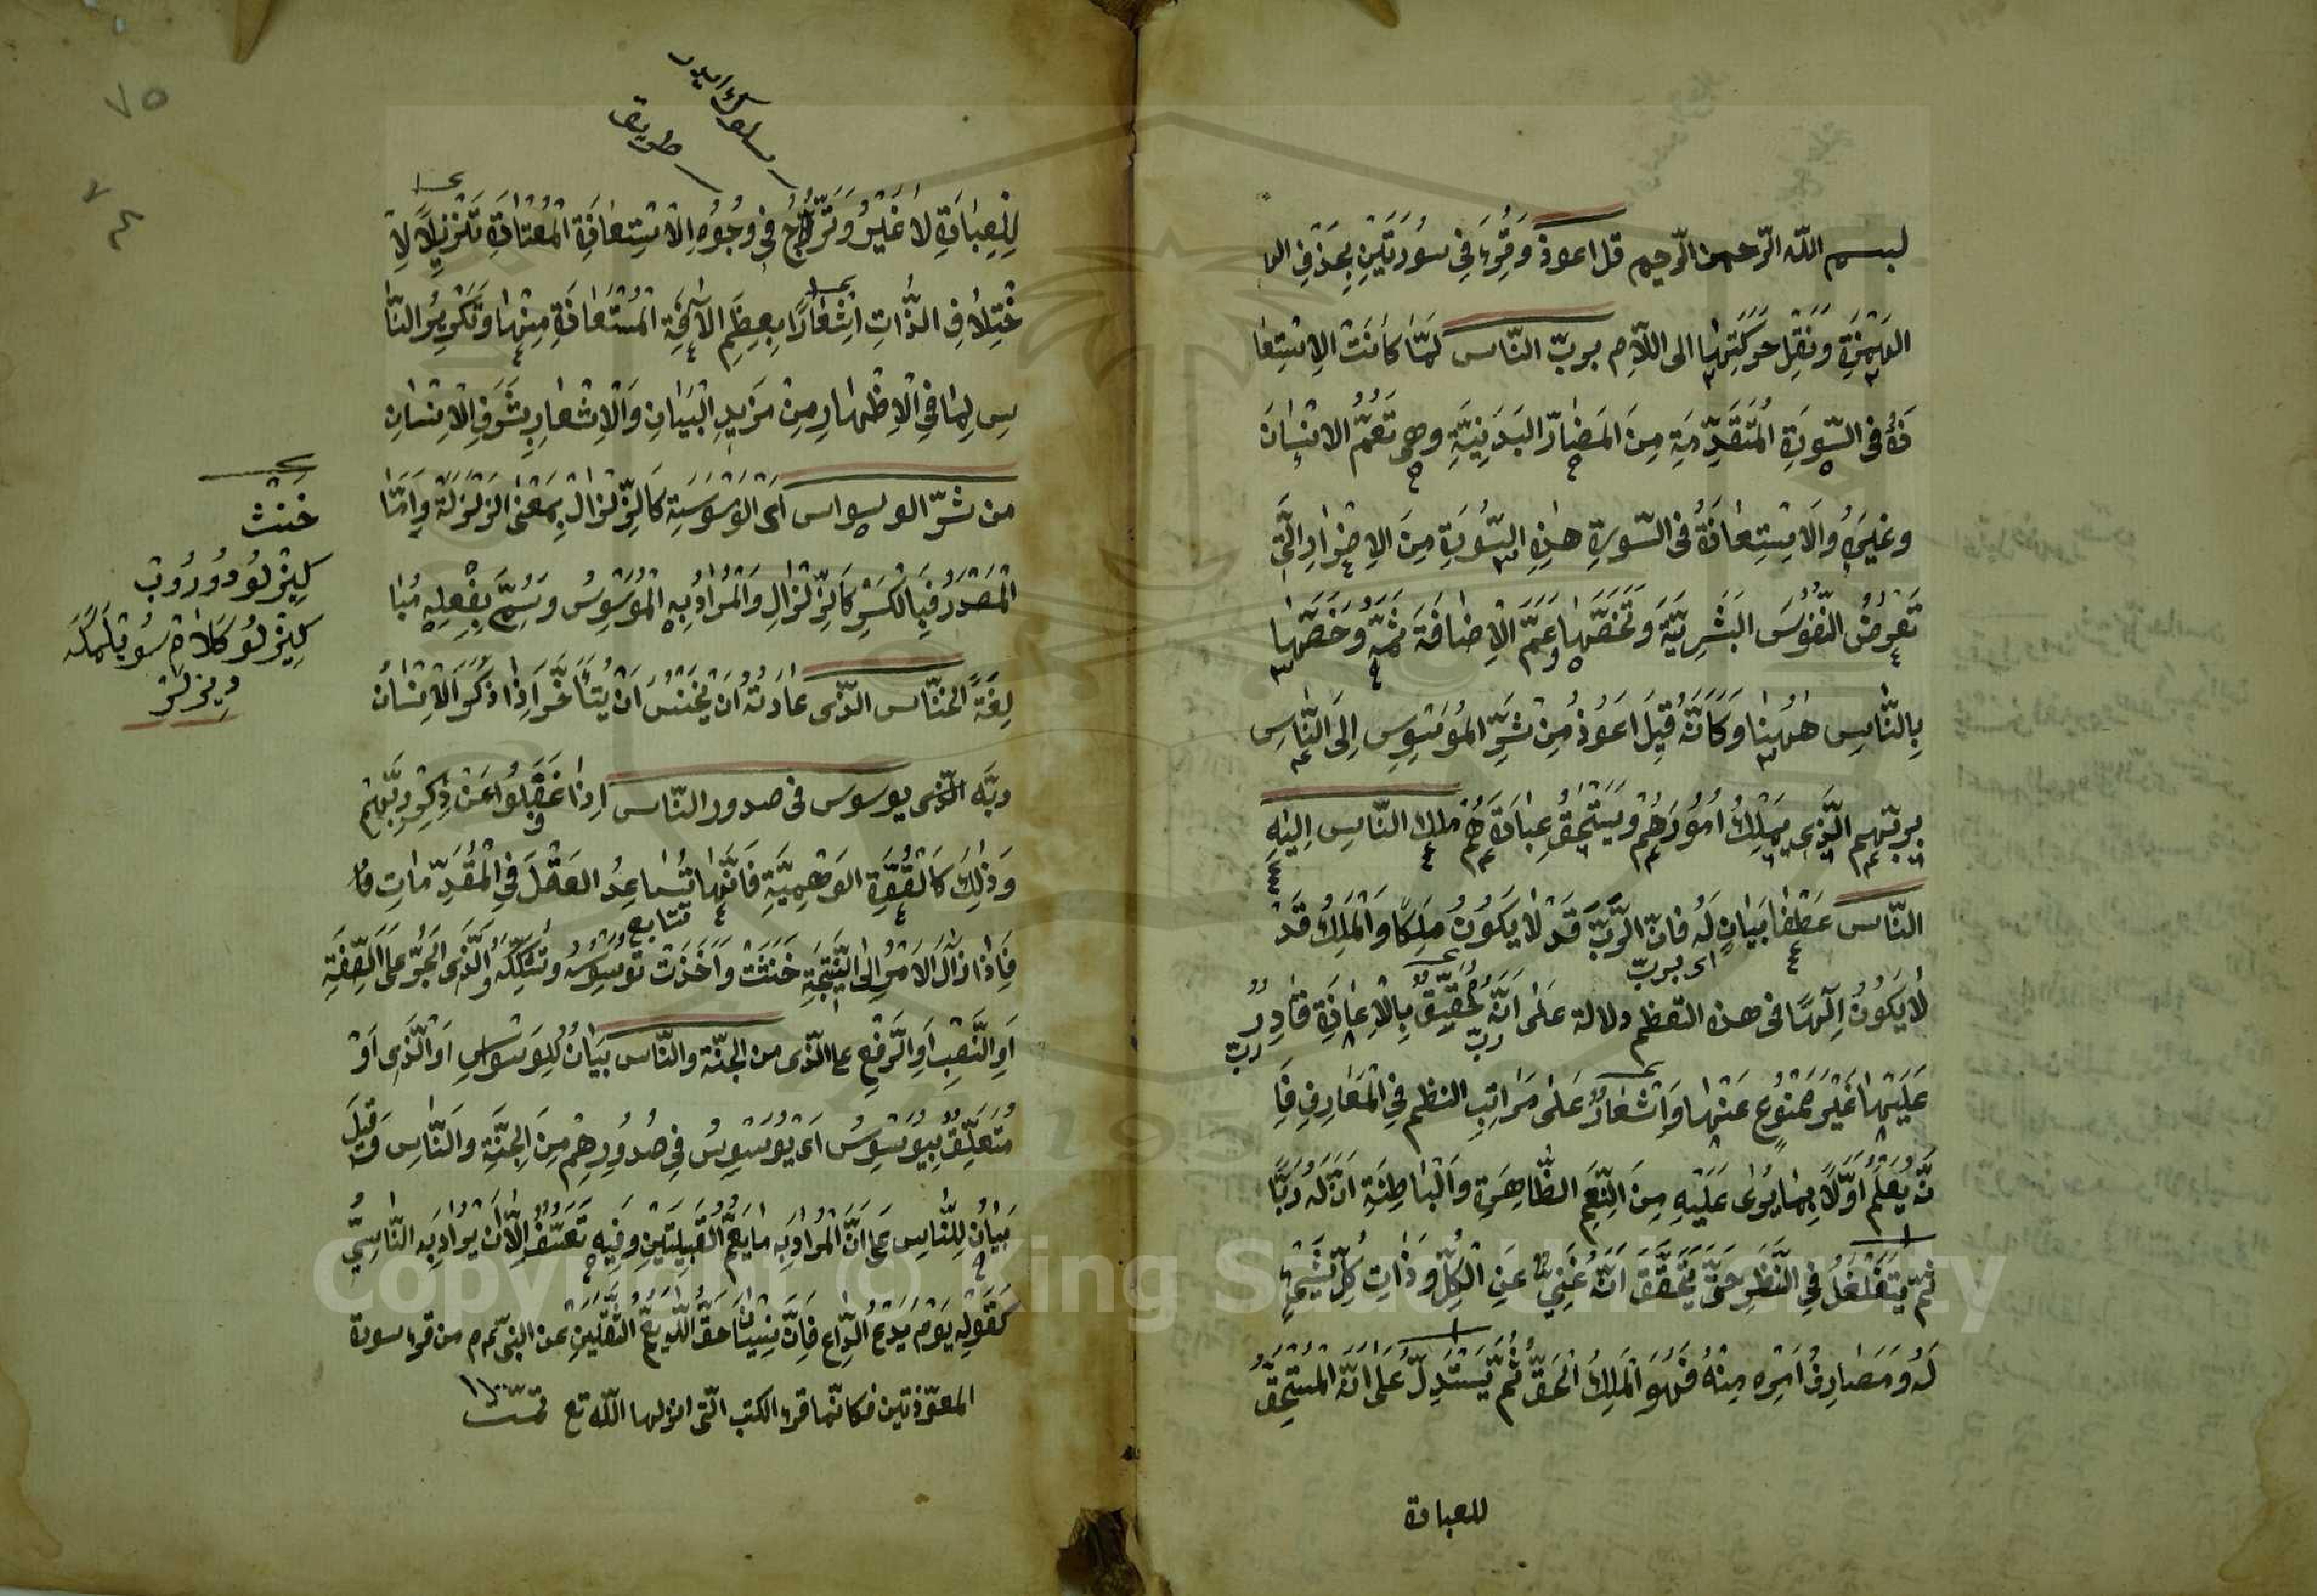 بسم الله الرّحمن الرّحيم قل اعوذ وَقُرِئَ فِى سُورَتَيْنِ بِحَذْفِ الـ
الهَمْزَةِ وَنَقْلِ حَرَكَتِهَا الى اللاَّمِ بربّ النّاس لَمَّا كَانَتْ الِاسْتِعَا
ذَةُ فى السُّورَةِ المُتَقَدِّمَةِ مِنَ المَضَارِّ البَدَنِيَّةِ وهى تَعُمُّ الانْسَانَ
وغَيْرَهُ وَالاسْتِعَاذَةُ فى السّورة هٰذِهِ السُّورَةِ مِنَ الاِضْرَارِ الَّتِى
تَعْرِضُ النُّفُوسَ البَشَرِيَّةَ وَتَخُصُّهَا عَمَّ الْاِضَافَةَ ثَمَّهْ وَخَصَّهَا
بِالنَّاسِ هٰهُنَا وَكَاَنَّهُ قِيلَ اَعُوذُ مِنْ شَرِّ المُوَسْوِسِ اِلَى النَّاسِ
بِرَبِّهِمِ الَّذِى يَمْلِكُ اُمُورَهُمْ وَيَسْتَحِقُّ عِبَادَتَهُمْ ملك النّاس اِلٰهِ
النّاس عَطْفَا بَيَانٍ لَهُ فَاِنَّ الرَّبَّ قَدْ لَا يَكُونُ مَلِكًا وَالْمَلِكُ قَدْ
اى بربّ
لَا يَكُونُ اِلٰهًا فى هذا النّظم دلالة عَلَى اَنَّهُ حَقِيقٌ بِالْاِعَاذَةِ قَادِرٌ
ربّ
ربّ
عَلَيْهَا غَيْرُ مَمْنُوعٍ عَنْهَا وَاِشْعَارٌ عَلَى مَرَاتِبِ النظم فِى الْمَعَارِفِ فَاِ
نَّهُ يَعْلَمُ اَوَّلًا بِمَا يَرٰى عَلَيْهِ مِنَ النِّعَمِ الظَّاهِرَةِ وَالْبَاطِنَةِ اَنَّ لَهُ رَبًّا
ثُمَّ يَتَغَلْغَلُ فِى النَّظَرِ حَتَّى يَتَحَقَّقَ اَنَّهُ غَنِىٌّ عَنِ الْكُلِّ وَذَاتِ كُلِّ شَىْءٍ
لَهُ وَمَصَارِفُ اَمْرِهِ مِنْهُ فَهُوَ الْمَلِكُ الْحَقُّ ثُمَّ يَسْتَدِلُّ عَلَى اَنَّهُ الْمُسْتَحِقُّ
للعبادة
سلوك ايدر
طريق
لِلْعِبَادَةِ لَا غَيْرُ وَتَدَرُّجٌ فِى وُجُوهِ الْاسْتِعَاذَةِ الْمُعْتَادَةِ تَنْزِيلًا لِا
خْتِلَافِ الذَّاتِ اِشْعَارًا بِعِظَمِ الْاٰفَةِ الْمُسْتَعَاذَةِ مِنْهَا وَتَكْرِيرُ النَّا
سِ لِمَا فِى الْاِظْهَارِ مِنْ مَزِيدِ الْبَيَانِ وَالْاِشْعَارِ بِشَرَفِ الْاِنْسَانِ
من شرّ الوسواس اَىِ الْوَسْوَسَةِ كَالزَّلْزَالِ بِمَعْنَى الزَّلْزَلَةِ وَاَمَّا
الْمَصْدَرُ فَبِالْكَسْرِ كَالزِّلْزَالِ وَالْمُرَادُ بِهِ الْمُوَسْوِسُ وَسُمِّىَ بِفِعْلِهِ مُبَا
لَغَةً الخنّاس الّذى عَادَتُهُ اَنْ يَخْنِسَ اَنْ يَتَأَخَّرَ اِذَا ذَكَرَ الْاِنْسَانُ
ربَّه الّذى يوسوس فى صدور النّاس اِذَا غَفَلُوا عَنْ ذِكْرِ رَبِّهِمْ
وَذٰلِكَ كَالْقُوَّةِ الوَهْمِيَّةِ فَاِنَّهَا تُسَاعِدُ العَقْلَ فِى الْمُقَدِّمَاتِ
فَاِذَا آلَ الاَمْرُ اِلَى النَّتِيجَةِ خَنَثَتْ وَاَخَذَتْ تُوَسْوِسُهُ وَتُشَكِّكُهُ وَالَّذِى الجَرُّ عَلَى الصِّفَةِ
اَوِ النَّصْبِ اَوِ الرَّفْعِ عا الذّى من الجنّة والنّاس بَيَانٌ لِلْوَسْوَاسِ اَوْ الَّذِى اَوْ
مُتَعَلِّقٌ بِيُوَسْوِسُ اَىْ يُوَسْوِسُ فِى صُدُورِهِمْ مِنَ الجِنَّةِ وَالنَّاسِ وَقِيلَ
بَيَانٌ لِلنَّاسِ عَلَى اَنَّ الْمُرَادَ بِهِ مَا يَعُمُّ الْقَبِيلَتَيْنِ وَفِيهِ تَعَسُّفٌ اِلَّا اَنْ يُرَادَ بِهِ النَّاسِىُّ
كَقَوْلِهِ يَوْمَ يَدْعُ الدَّاعِ فَاِنَّ نِسْيَانَ حَقِّ اللّٰهِ يَعُمُّ الثَّقَلَيْنِ عن النبىّ عم من قرء سورة
المعوّذتين فكانّما قرء الكتب الّتى انزلها اللّه تع تمّت
خنث